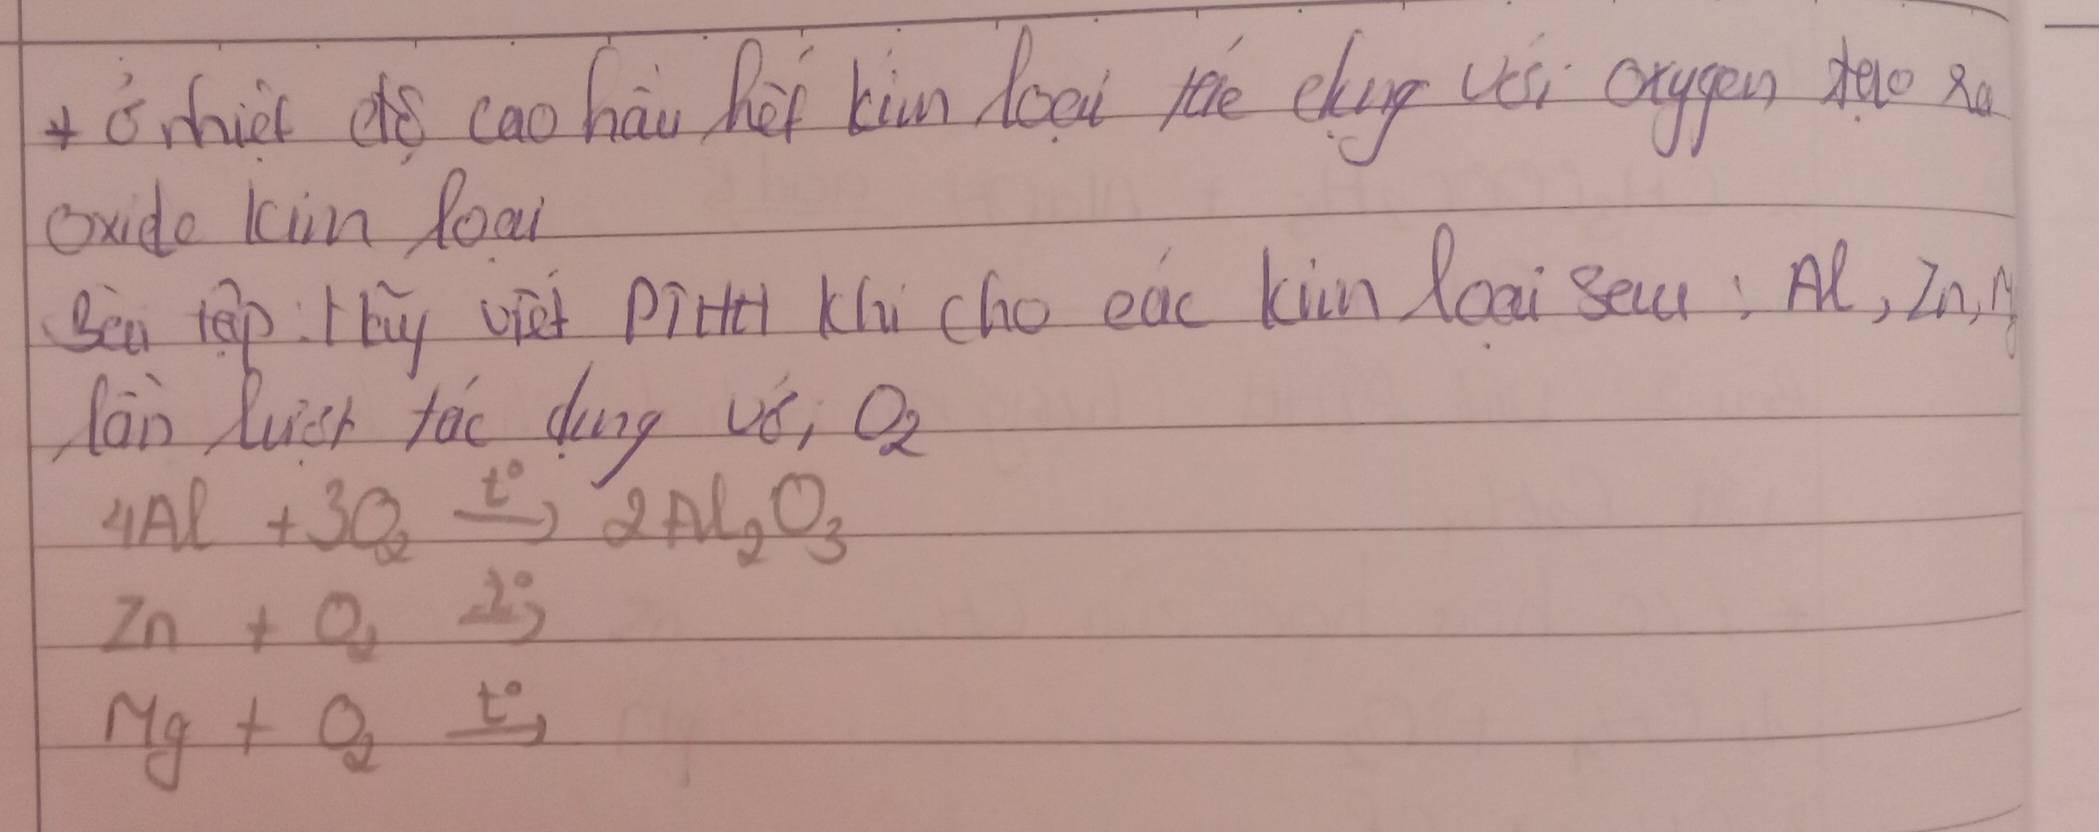 + ở nhiệt độ cao hầu hết kim loại tác dụng với oxygen tạo ra
oxide kim loại
Bài tập: Hãy viết PTHH khi cho các kim loại sau: Al, Zn, Mg
lần lượt tác dụng với O₂
4Al + 3O₂ t°→ 2Al₂O₃
Zn + O₂ t°→
Mg + O₂ t°→